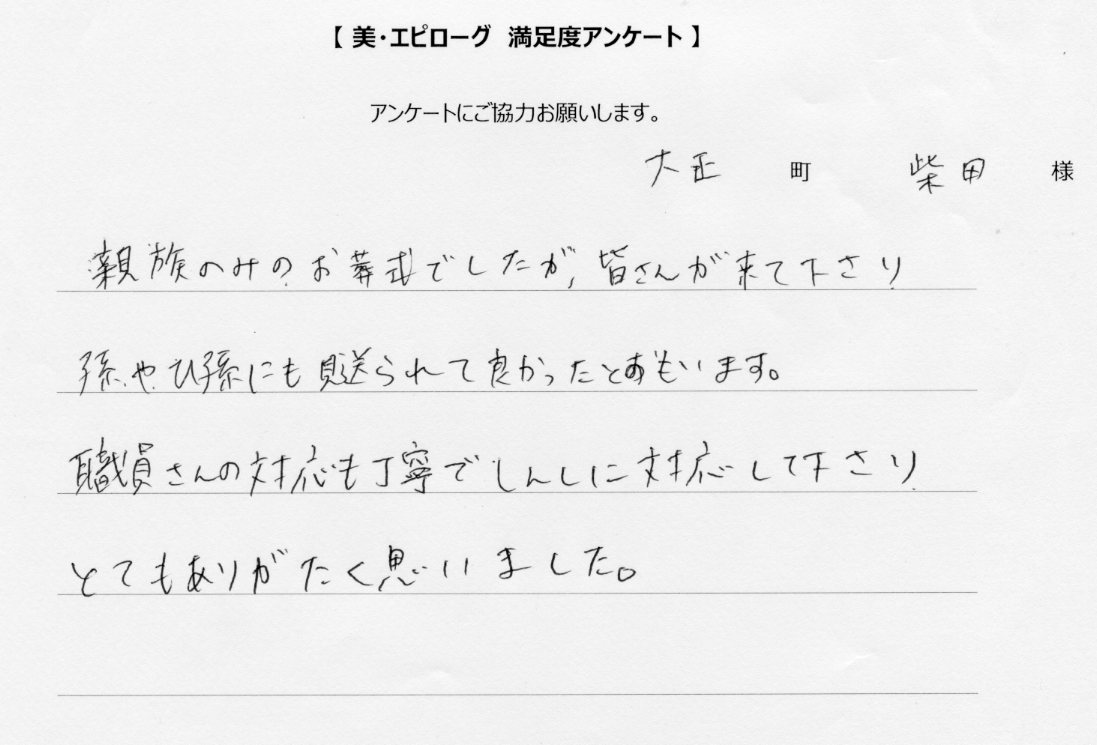 【 美・エピローグ 満足度アンケート 】
アンケートにご協力お願いします。
大正 町 柴田 様
親族のみのお葬式でしたが、皆さんが来て下さり
孫やひ孫にも見送られて良かったとおもいます。
職員さんの対応も丁寧でしんしに対応して下さり
とてもありがたく思いました。